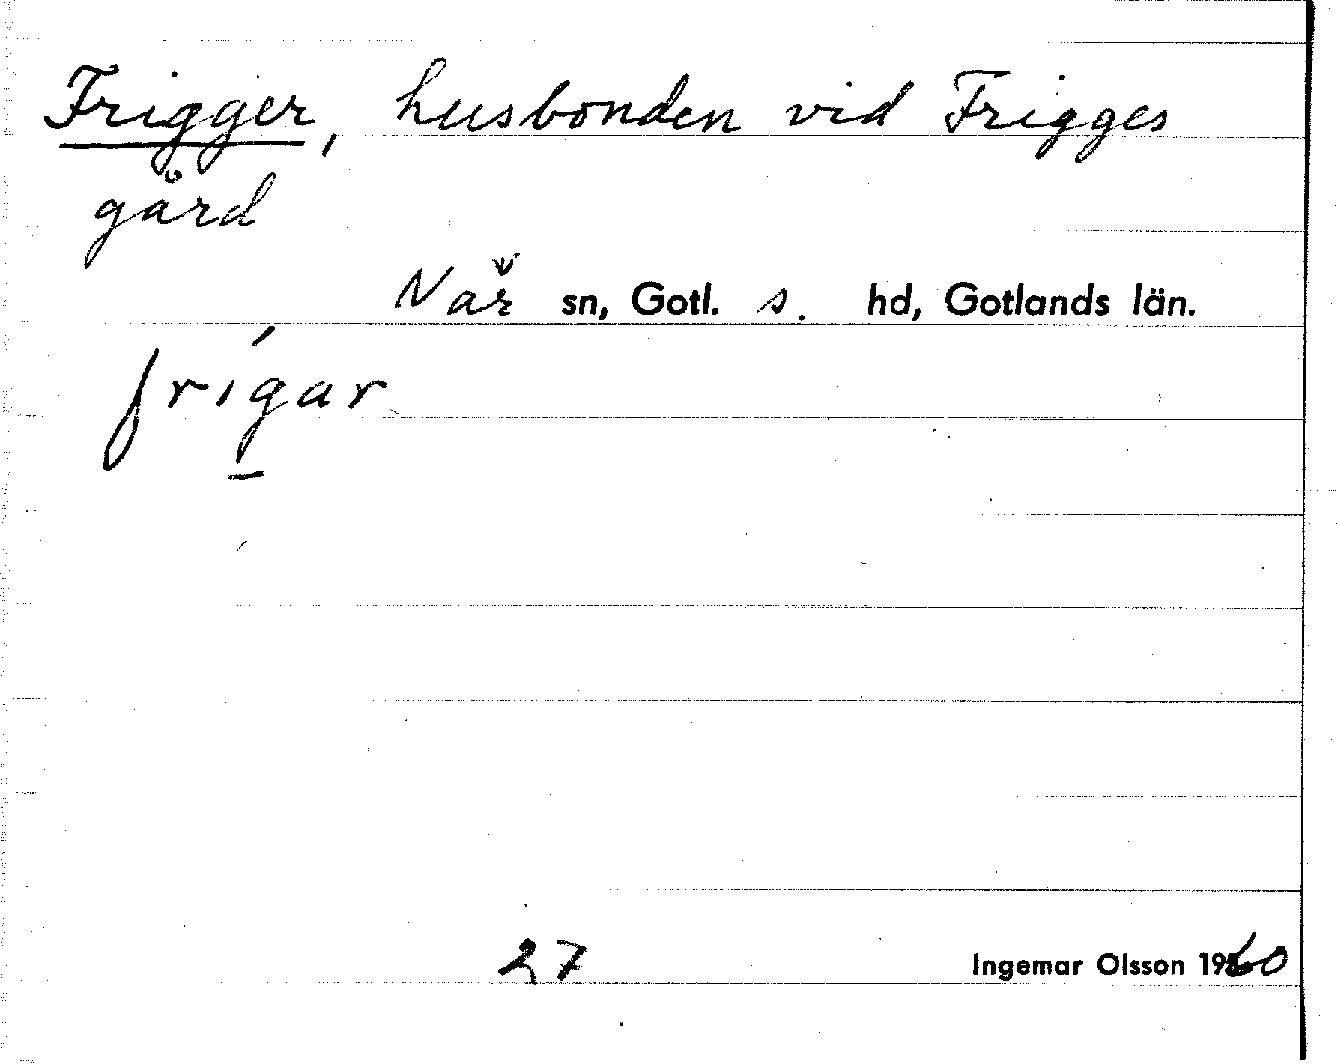 Frigger, husbonden vid Frigges
gård
När sn, Gotl. s. hd, Gotlands län.
frígar
27 Ingemar Olsson 1960